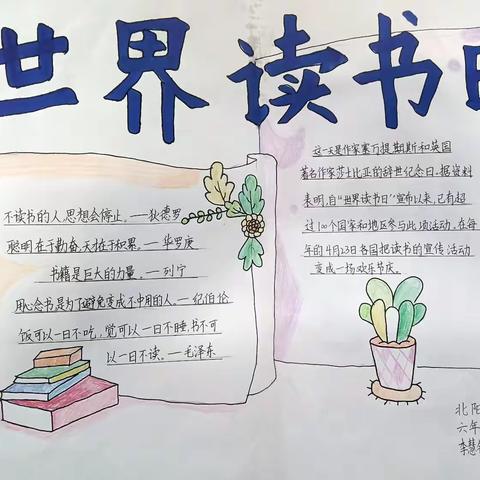 世界读书日
不读书的人,思想会停止。—狄德罗
聪明在于勤奋,天才在于积累。—华罗庚
书籍是巨大的力量。—列宁
用心念书是为了避免变成不中用的人。—纪伯伦
饭可以一日不吃,觉可以一日不睡,书不可
以一日不读。—毛泽东
这一天是作家塞万提斯斯和英国
著名作家莎士比亚的辞世纪念日。据资料
表明,自“世界读书日”宣布以来,已有超
过100个国家和地区参与此项活动。在每
年的4月23日各国把读书的宣传活动
变成一场欢乐节庆。
北阳
六年
李慧